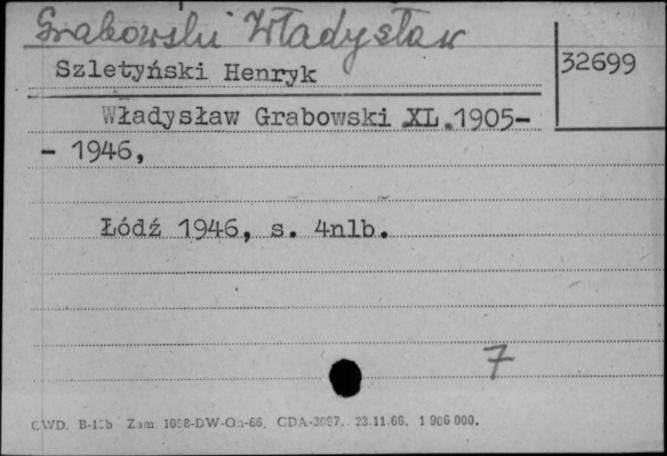 Grabowski Władysław
Szletyński Henryk
32699
Władysław Grabowski XL.1905-
- 1946,
Łódź 1946, s. 4nlb.
7
CWD. B-15b Zam. DW-On-66. CDA- 23.11.66. 1 906 000.